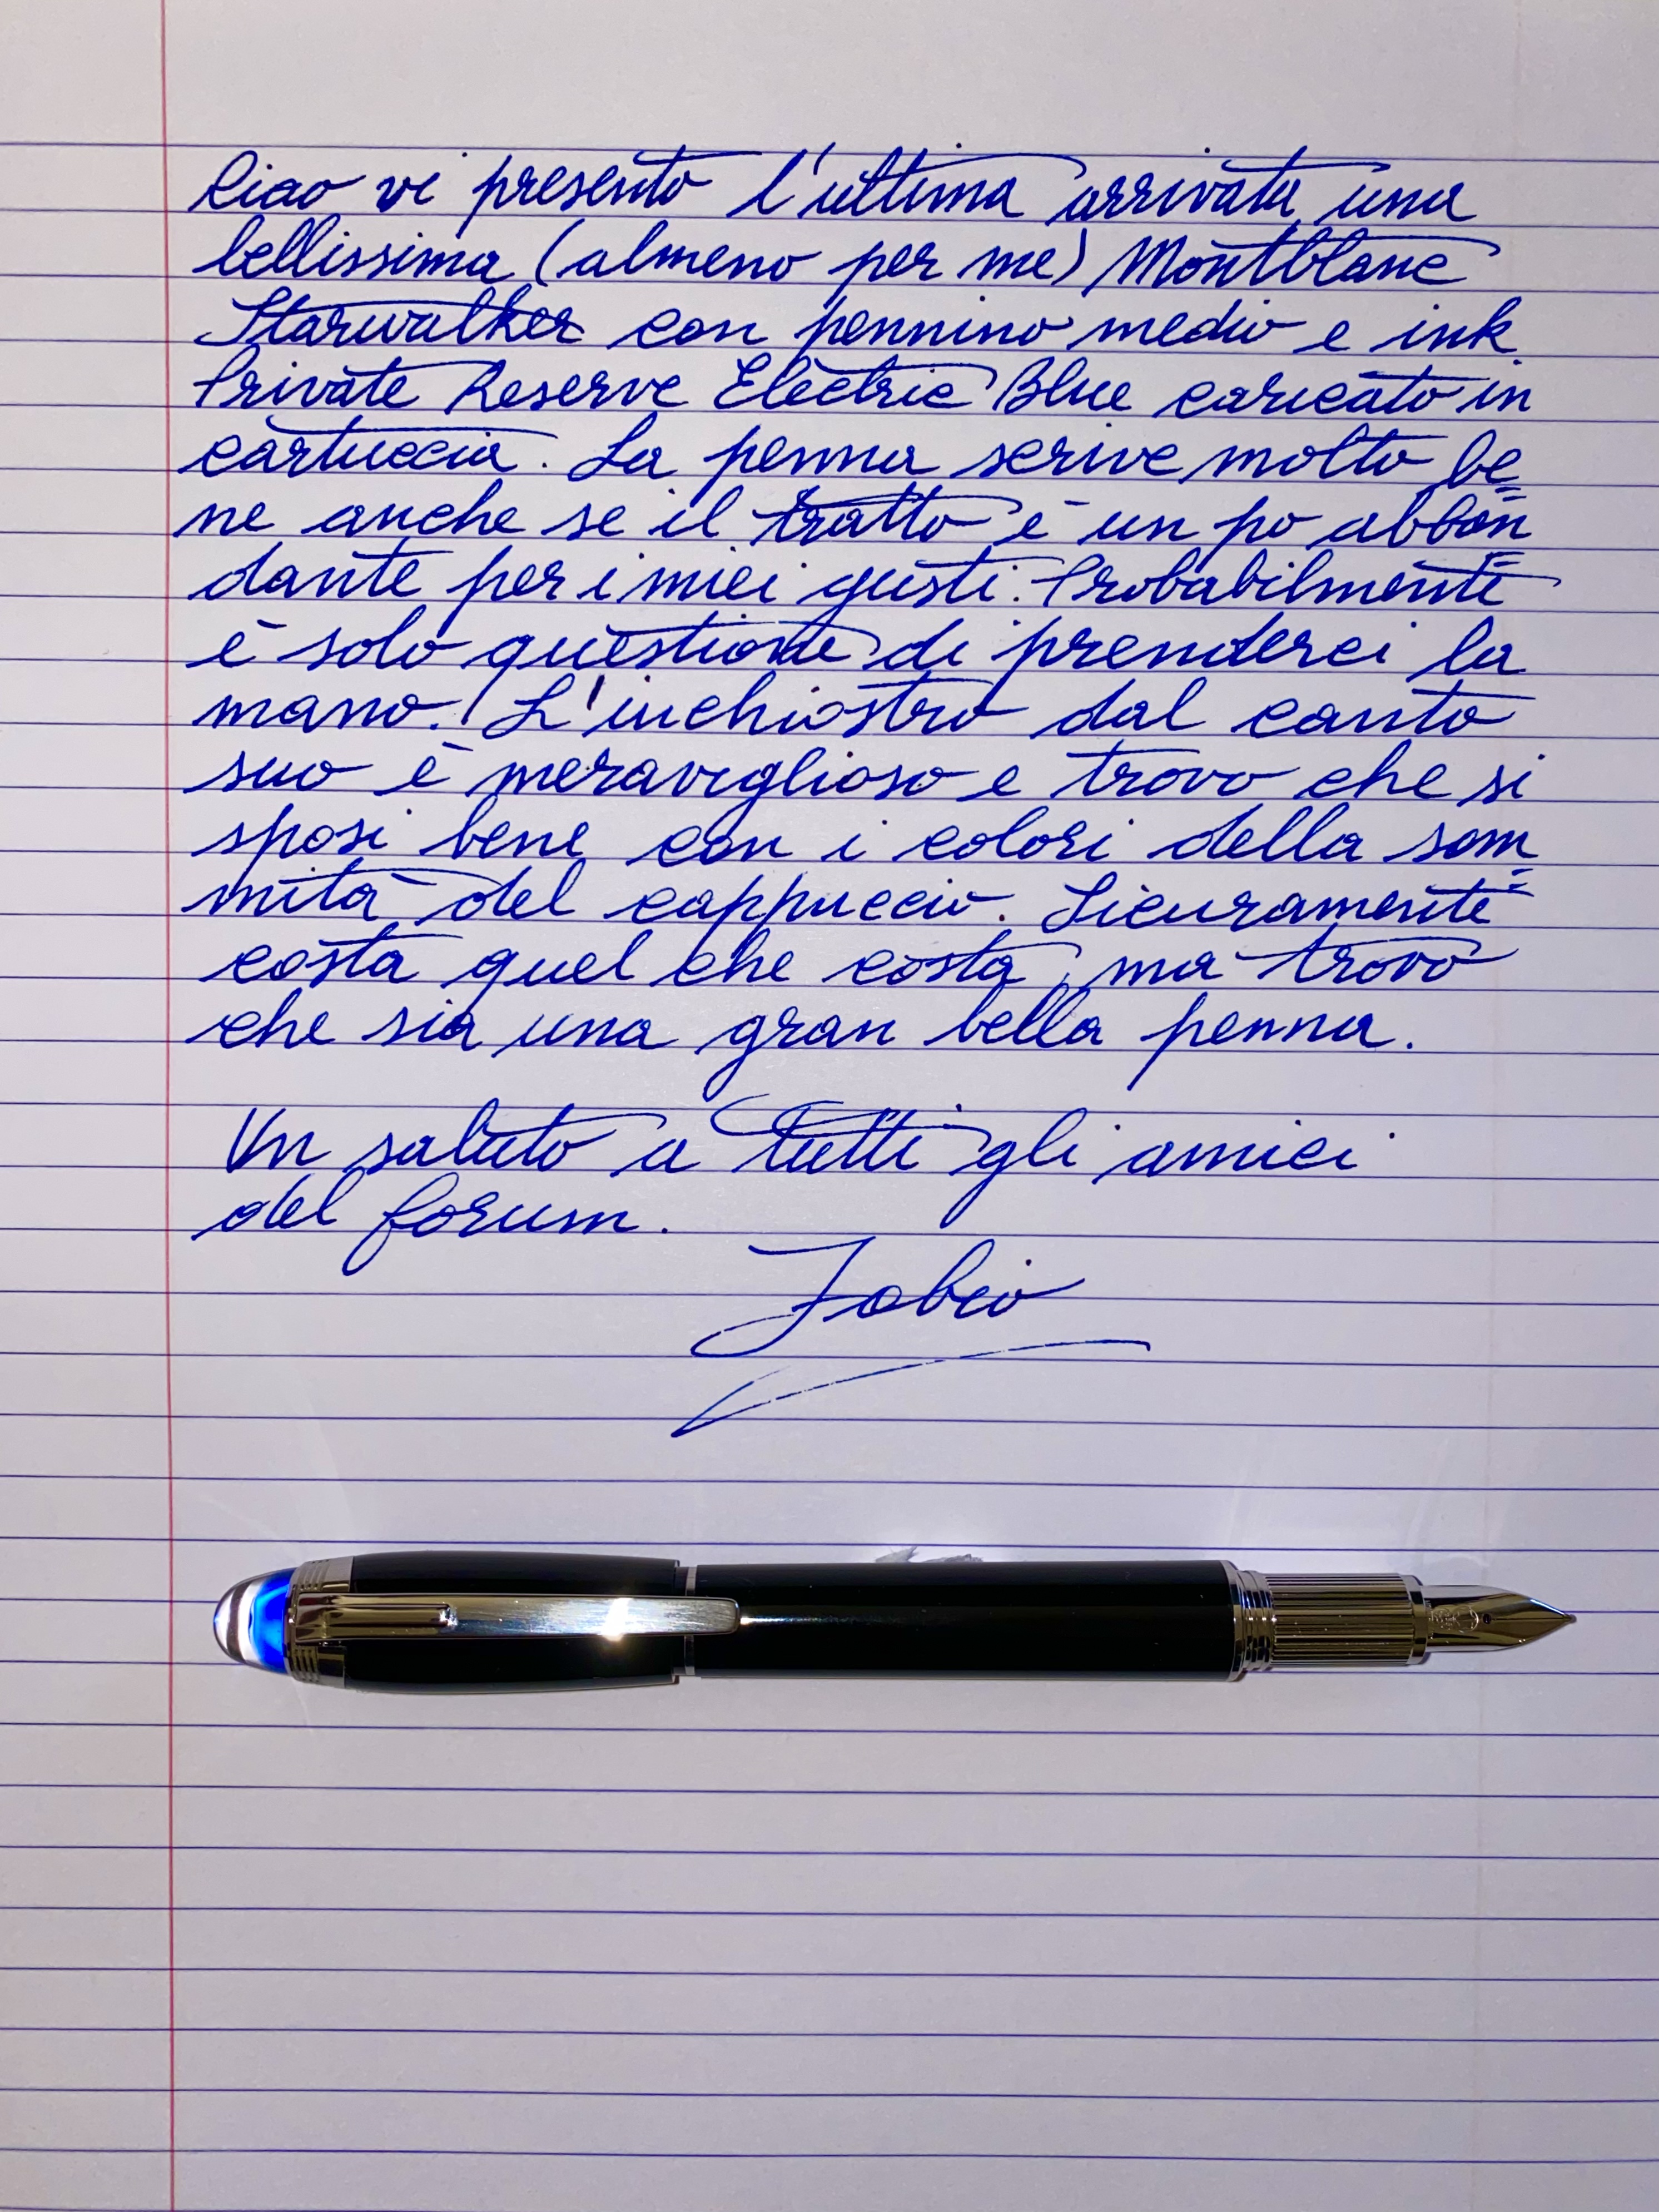 Ciao vi presento l'ultima arrivata, una
bellissima (almeno per me) Montblanc
Starwalker con pennino medio e ink
Private Reserve Electric Blue caricato in
cartuccia. La penna scrive molto be=
ne anche se il tratto è un po abbon=
dante per i miei gusti. Probabilmente
è solo questione di prenderci la
mano. L'inchiostro dal canto
suo è meraviglioso e trovo che si
sposi bene con i colori della som=
mità del cappuccio. Sicuramente
costa quel che costa, ma trovo
che sia una gran bella penna.
Un saluto a tutti gli amici
del forum.
Fabio